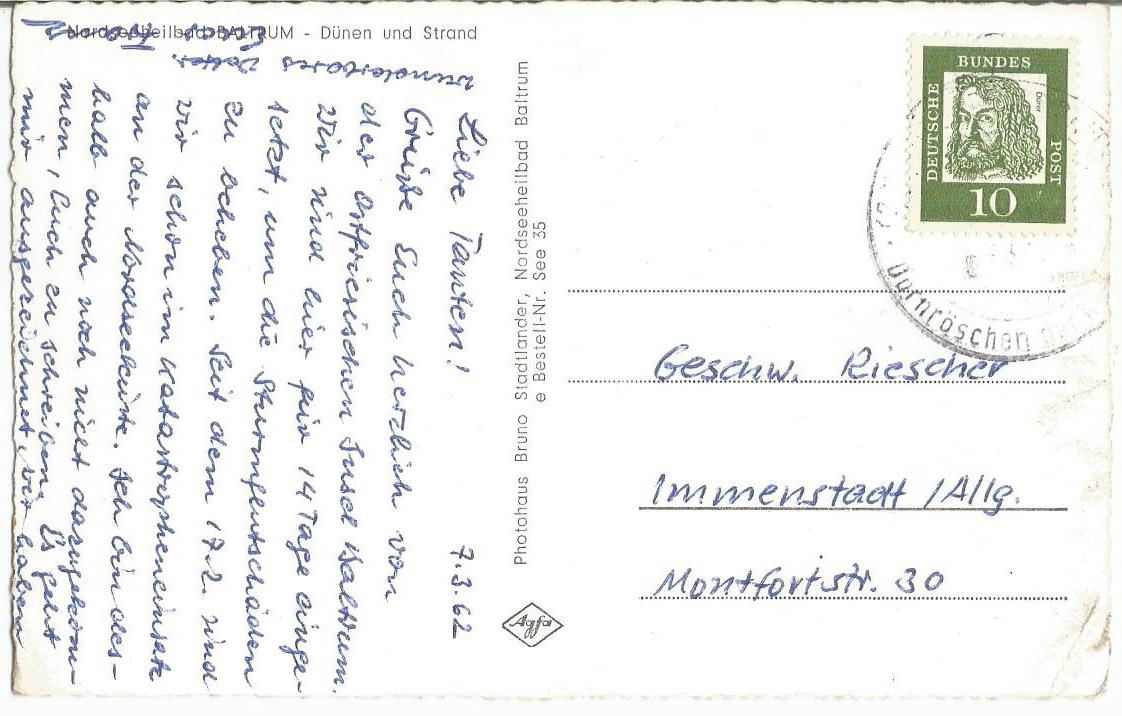 Nordseeheilbad BALTRUM - Dünen und Strand
7.3.62
Liebe Tanten!
Grüße Euch herzlich von
der Ostfriesischen Insel Baltrum.
Wir sind hier für 14 Tage einge-
setzt, um die Sturmflutschäden
zu beheben. Seit dem 17.2. sind
wir schon im Katastropheneinsatz
an der Nordseeküste. Ich bin des-
halb auch noch nicht dazugekom-
men, Euch zu schreiben. Es geht
mir ausgezeichnet, wir haben
wunderbares
Wetter.
Photohaus Bruno Stadtlander, Nordseeheilbad Baltrum
e Bestell-Nr. See 35
Agfa
DEUTSCHE
BUNDES
POST
Dürer
10
Dornröschen der
Geschw. Riescher
Immenstadt / Allg.
Montfortstr. 30